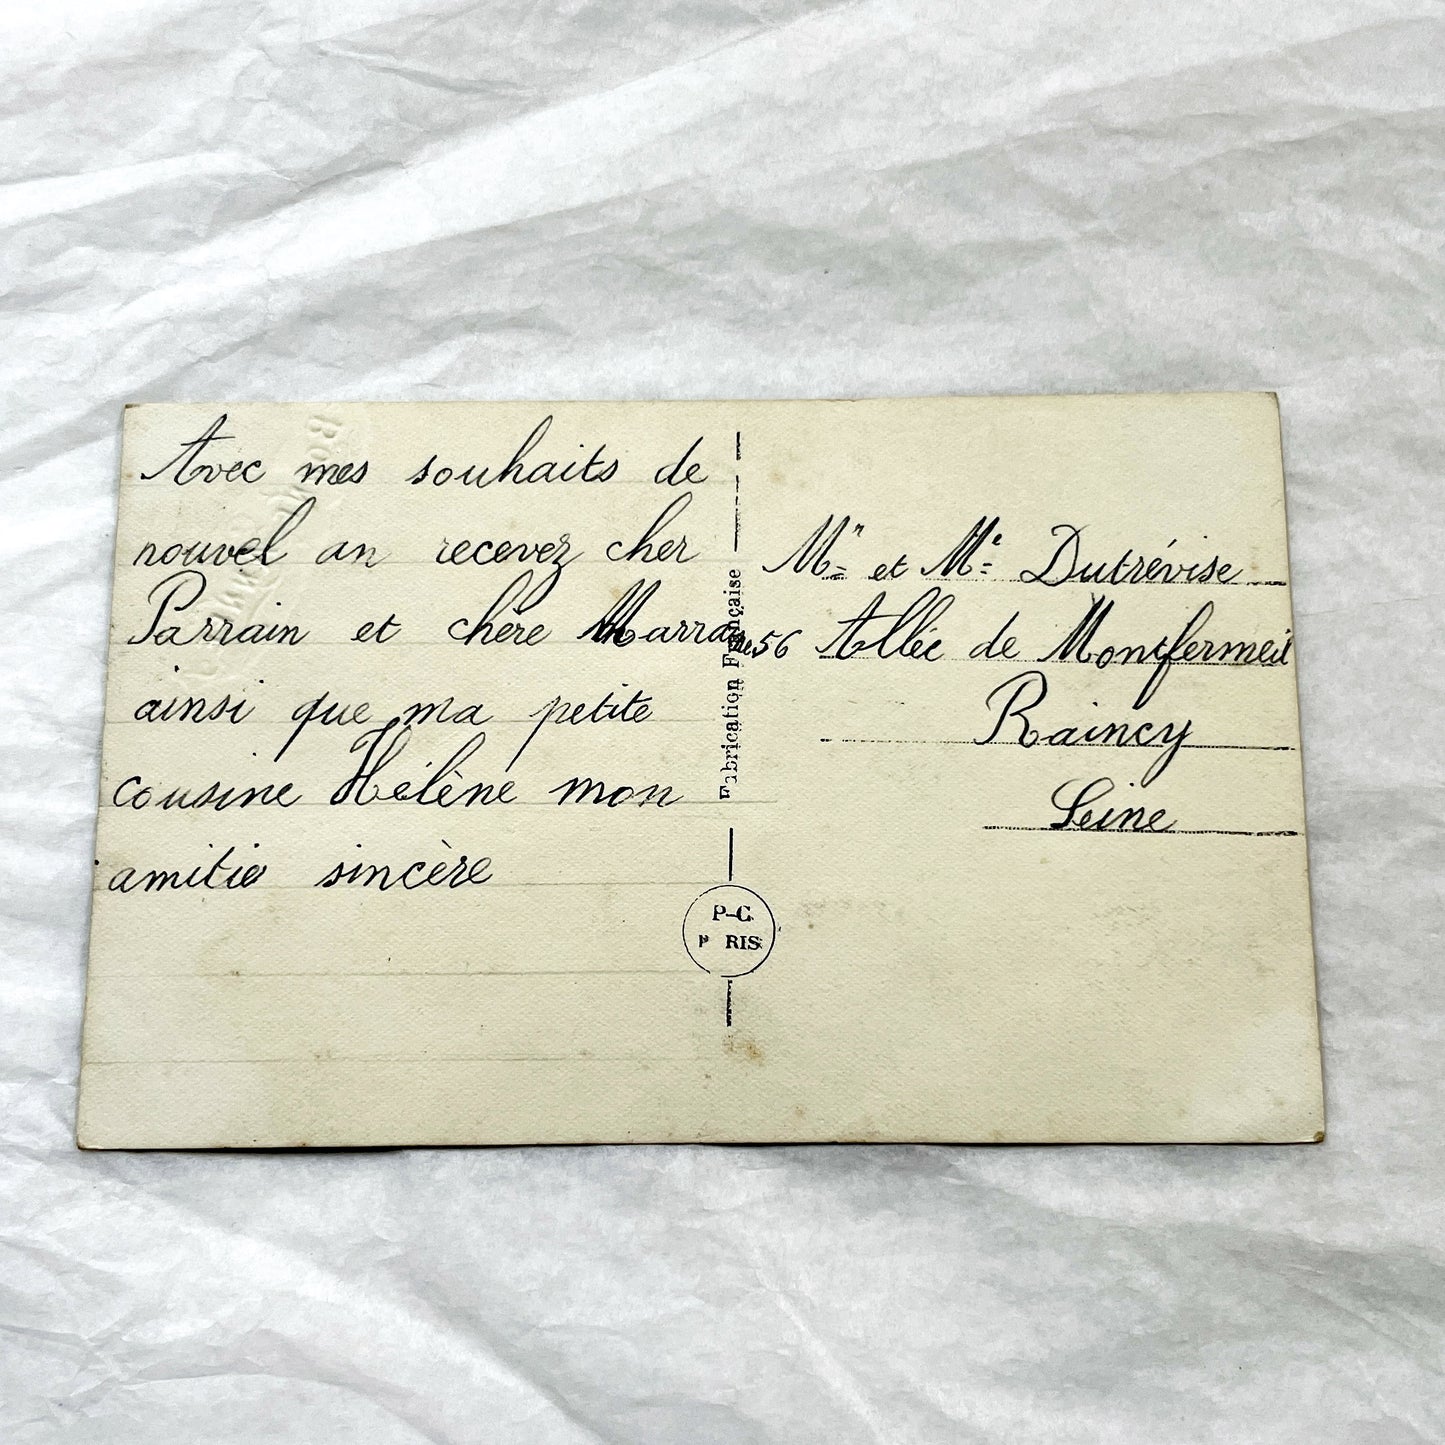 Avec mes souhaits de
nouvel an recevez cher
Parrain et chère Marraine
ainsi que ma petite
cousine Hélène mon
amitié sincère
Fabrication Française
P-C
P RIS
Mr et Me Dutrévise
56 Allée de Montfermeil
Raincy
Seine